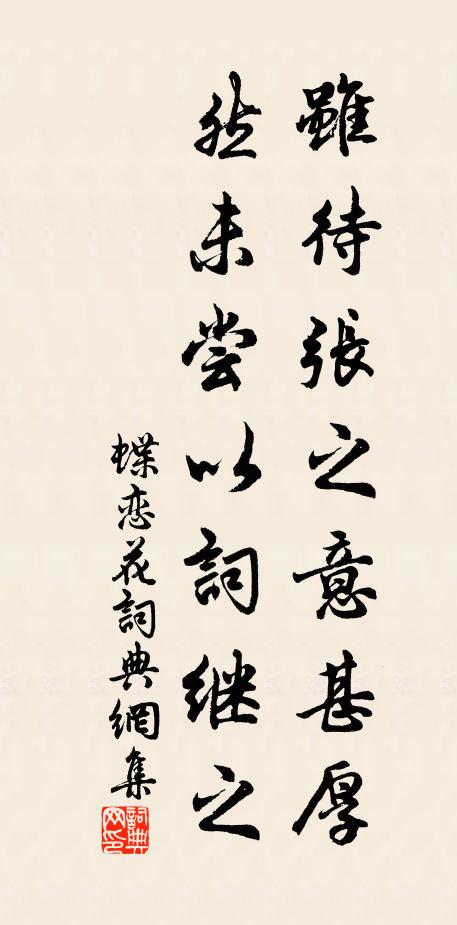 雖待張之意甚厚
然未尝以詞継之
蝶恋花詞典網集
詞典网印